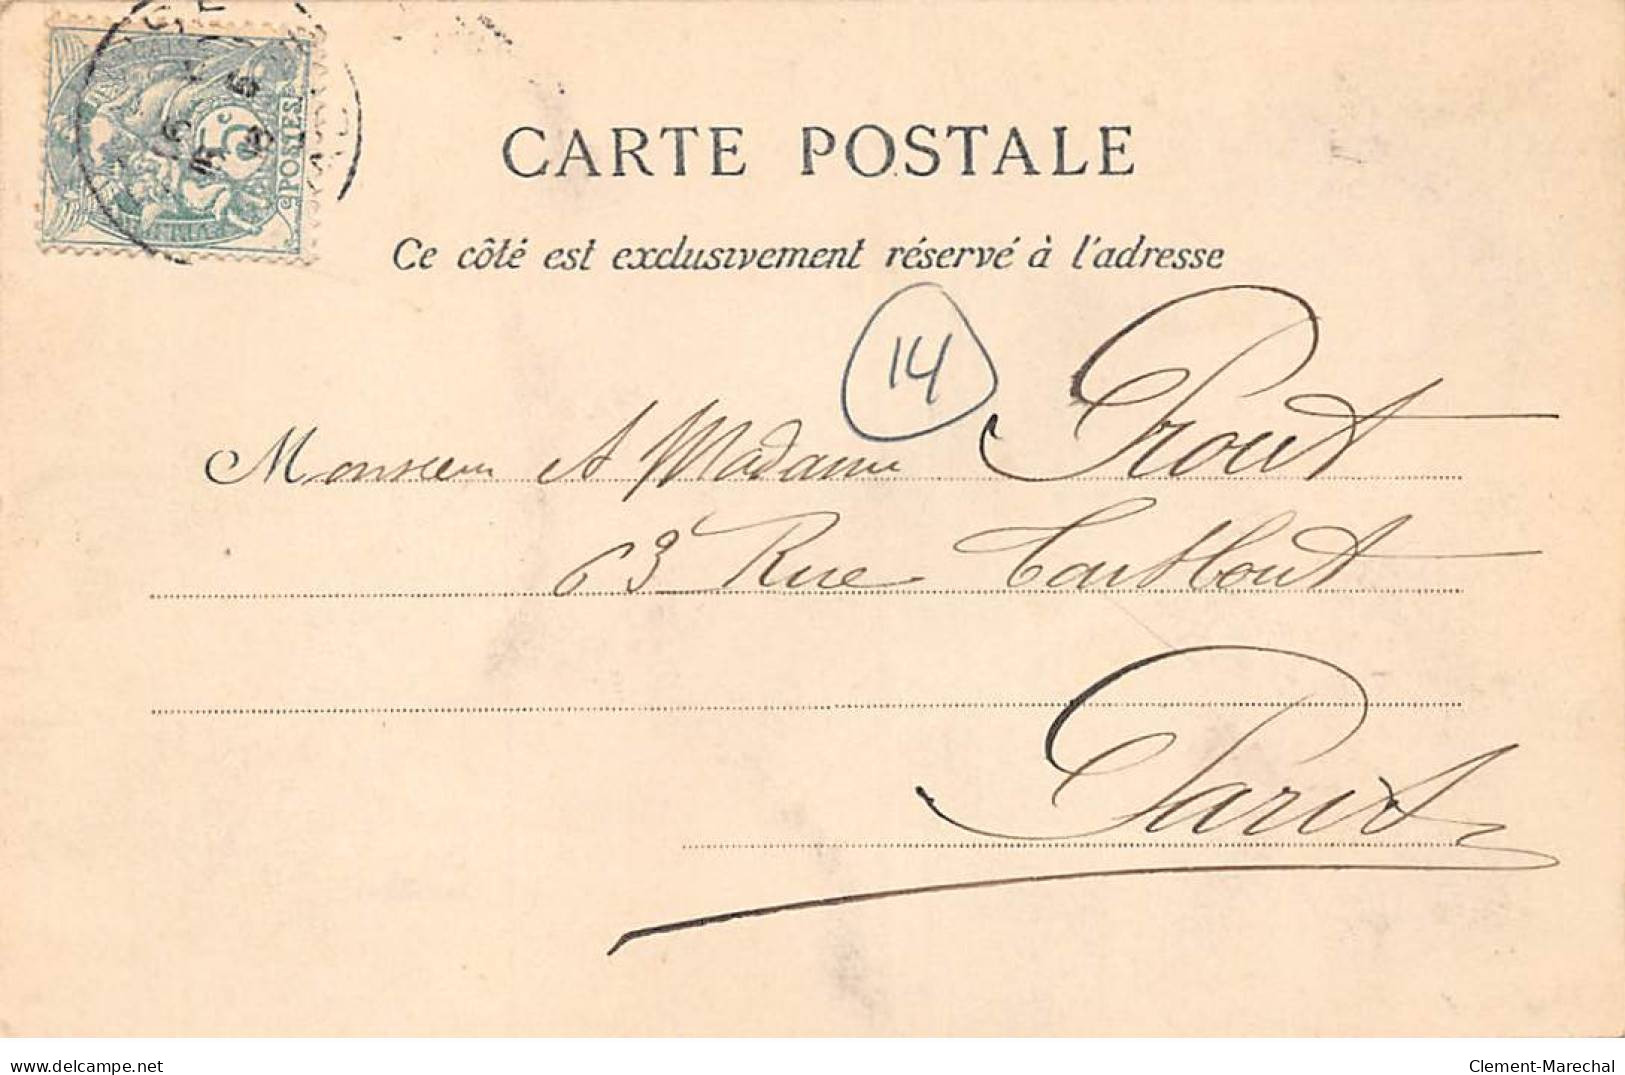 5c
POSTES
CARTE POSTALE
Ce côté est exclusivement réservé à l'adresse
14
Monsieur et Madame Prout
63 Rue Taitbout
Paris
delcampe.net
Clement-Marechal